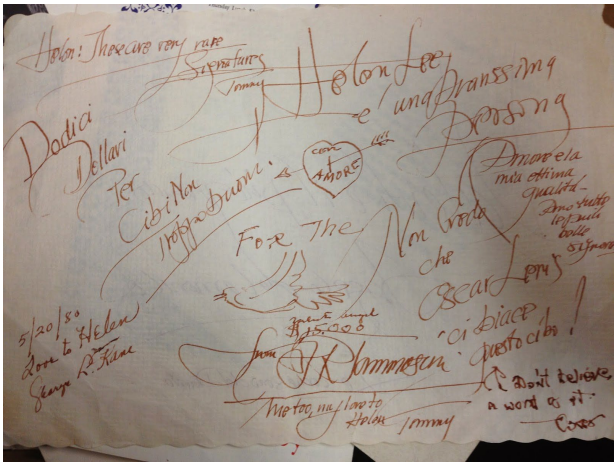 Helen! These are very rare
Signatures
Tommy
Helen Lee
e' una
Persona
Dodici
Dollari
Per
Cibi Non
Troppo buoni.
con
AMORE
Amore e la
mia ottima
qualità
Amo tutto
belle
signore
For The
Non Credo
che
Oscar
ci piace
questo cibo!
5/20/80
Love to Helen
George R. Kane
$15.000
From
Me too, my love to
Helen Tommy
Don't believe
a word of it.